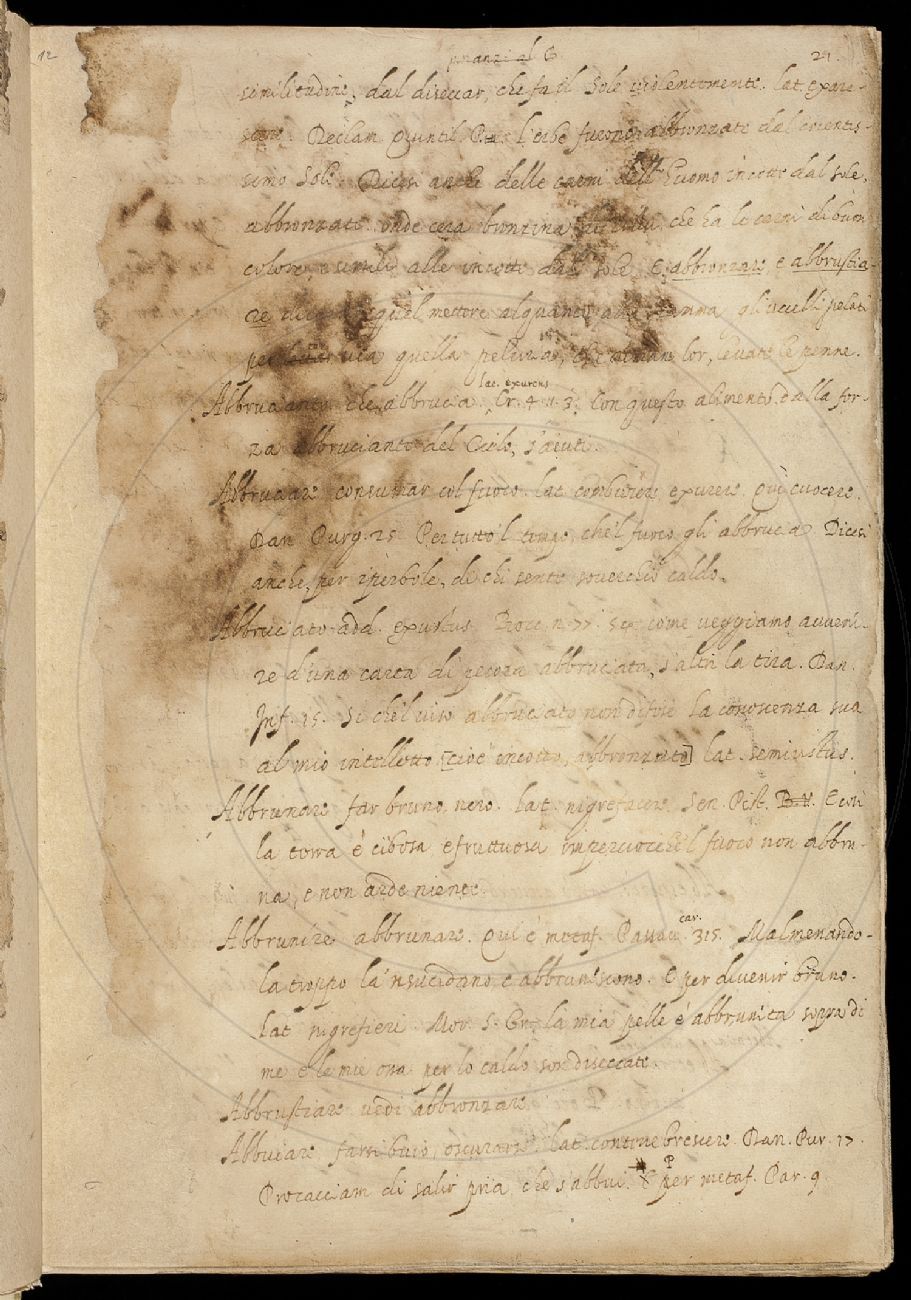 12
21.
similitudine, dal diseccar, che fa il Sole violentemente. lat. exare-
scere. Declam. Quintil. P. l'erbe furono abbronzate dal cocentis-
simo Sole. Dicesi anche delle carni dell' huomo incotte dal sole,
abbronzate onde cera bronzina che ha le carni di bum
colore, simili alle incotte dal sole. E abbronzare, e abbrustia-
re quel mettere alquanto alla gli uccelli pelati
per via quella peluria, che riman lor, levate le penne.
lat. exurens
Abbruciante che abbrucia. Cr. 4. 11. 3. Con questo alimento, dalla for-
za abbruciante del Cielo, s'aiuti.
Abbruciare consumar col fuoco. lat. comburere, exurere. Qui cuocere.
Dan. Purg. 25. Per tutto 'l tempo, che 'l fuoco gli abbrucia. Dicesi
anche, per iperbole, di chi sente soverchio caldo.
Abbruciato add. exustus. Bocc. n. 77. sì come veggiamo avveni-
re d'una carta di pecora abbruciata, s'altri la tira. Dan.
Inf. 15. Sì che 'l viso abbruciato non difese la conoscenza sua
al mio intelletto [cioè incotto, abbronzato] lat. semiustus.
Abbrunare far bruno, nero. lat. nigrefacere. Sen. Pist. E così
la terra è cibosa e fruttuosa impercioché 'l fuoco non abbru-
na, e non arde niente.
car.
Abbrunire abbrunare. Qui è metaf. Passav. 315. Malmenando-
la troppo la 'nsucidano e abbruniscono. E per divenir bruno.
lat. nigrefieri. Mor. S. Gr. la mia pelle è abbrunita sopra di
me e le mie ossa per lo caldo son diseccate.
Abbrustiare vedi abbronzare.
Abbuiare farsi buio, oscurare. lat. contenebrescere. Dan. Pur. 17.
Procacciam di salir pria che s'abbui. E per metaf. Par. 9.